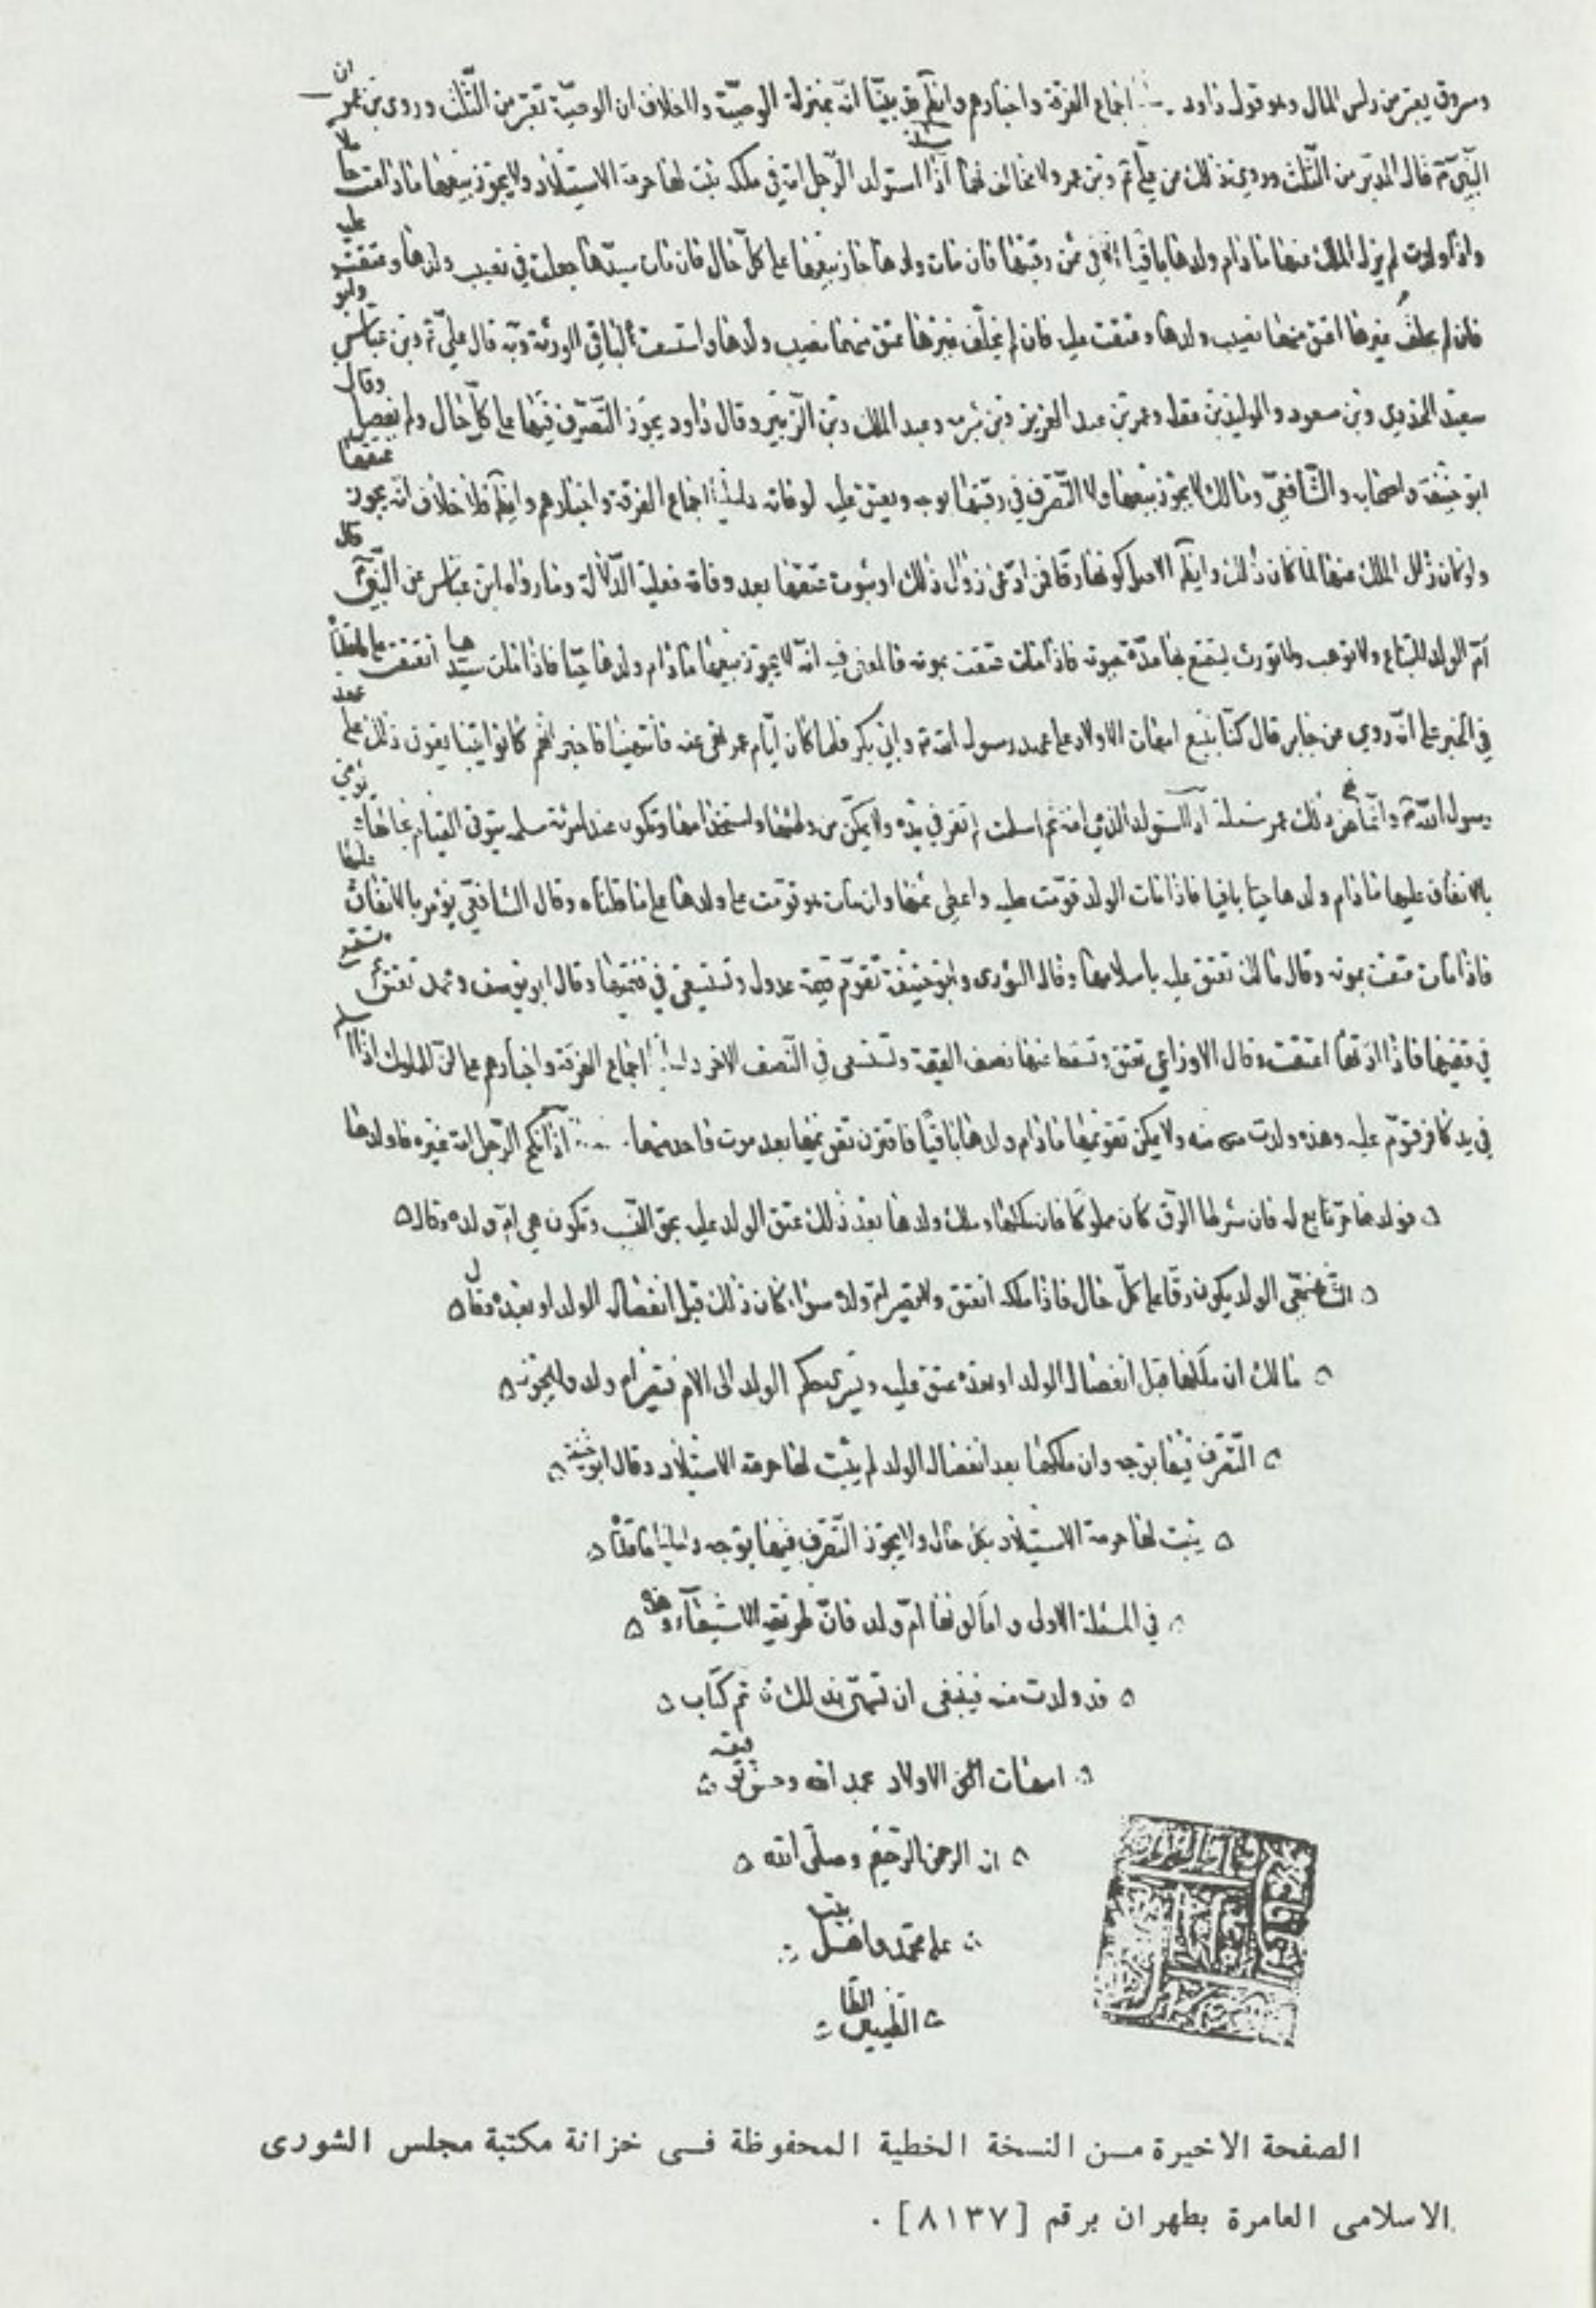 ومسروق يعتبر من رأس المال وهو قول داود اجماع الفرقة واخبارهم وايضا قد بيّنا انّه بمنزلة الوصيّة ولا خلاف ان الوصيّة تعتبر من الثّلث وروى بن عمر ان
النّبيّ قال المدبّر من الثّلث وروي ذلك عن علي وبن عمر ولا مخالف لهما اذا استولد الرّجل امة في ملكه ثبت لها حرمة الاستيلاد ولا يجوز بيعها ما دامت حاملا
واذا ولدت لم يزل الملك عنها ما دام ولدها باقيا الا في ثمن رقبتها فان مات ولدها جاز بيعها على كلّ حال فان مات سيّدها جعلت في نصيب ولدها وعتقت عليه
فان لم يخلف غيرها اعتق منها نصيب ولدها وعتقت عليه فان لم يخلّف غيرها عتق منها نصيب ولدها واستسعت لباقي الورثة وبه قال عليّ وبن عباس وابو
سعيد الخدري وبن مسعود والوليد بن عقبة وعمر بن عبد العزيز وبن سيرين وعبد الملك وبن الزّبير وقال داود يجوز التّصرّف فيها على كلّ حال ولم يفصل وقال
ابو حنيفة واصحابه والشّافعيّ ومالك لا يجوز بيعها ولا التّصرّف في رقبتها بوجه ويعتق عليه لوفاته دليلنا اجماع الفرقة واخبارهم وايضا فلا خلاف انّه يجوز عتقها
ولو كان زال الملك عنها لما كان ذلك وايضا الاصل كونها رقا فمن ادّعى زوال ذلك او ثبوت عتقها بعد وفاته فعليه الدّلالة وما رواه ابن عباس عن النّبيّ قال
امّ الولد لا تباع ولا توهب ولا تورث يستمتع بها مدّة حيوته فاذا مات عتقت بموته فالمعنى فيه انّه لا يجوز بيعها ما دام ولدها حيّا فاذا مات سيدها انعتقت على ما قلنا
في الخبر على انّه روي عن جابر قال كنّا نبيع امهات الاولاد على عهد رسول الله وابي بكر فلما كان ايّام عمر نهى عنه فانتهينا فاخبر انهم كانوا يتبايعون ذلك على عهد
رسول الله وانّما نهى عن ذلك عمر مسئلة اذا استولد الذّمي امة ثم اسلمت لم تقر في يده ولا يمكّن من وطئها واستخدامها وتكون عند امرئة مسلمة يتولى القيام بحالها يؤمر
بالانفاق عليها ما دام ولدها حيّا باقيا فاذا مات الولد قوّمت عليه واعطى ثمنها وان مات هو قوّمت على ولدها على ما قلناه وقال الشافعي يؤمر بالانفاق عليها
فاذا مات عتقت بموته وقال مالك تعتق عليه باسلامها وقال الثوري وابو حنيفة تقوّم قيمة عدول وتستسعى في قيمتها وقال ابو يوسف ومحمد تعتق
في قيمتها فاذا ادّتها اعتقت وقال الاوزاعي تعتق وتسقط عنها نصف القيمة وتستسعى في النّصف الآخر دليلنا اجماع الفرقة واخبارهم على انّ المملوك اذا اسلم
في يد كافر قوّم عليه وهذه ولدت منه ولا يمكن تقويمها ما دام ولدها باقيّا فاخترن تقويمها بعد موت احدهما اذا نكح الرّجل امة غيره فاولدها
فولدها حرّ تابع له فان شرط الرّق كان مملوكا فان ملكها وملك ولدها بعد ذلك عتق الولد عليه بحق النّسب وتكون هي امّ ولده وقال
الشّافعيّ الولد يكون رقّا على كلّ حال فاذا ملكه انعتق ولا تصير امّ ولده سواء كان ذلك قبل انفصال الولد او بعده وقال
مالك ان ملكها قبل انفصال الولد او بعده عتق عليه ويسرى حكم الولد الى الام فتصير ام ولد ولا يجوز
التّصرّف فيها بوجه وان ملكها بعد انفصال الولد لم يثبت لها حرمة الاستيلاد وقال ابو حنيفة
يثبت لها حرمة الاستيلاد بكل حال ولا يجوز التّصرّف فيها بوجه دليلنا ما قلناه
في المسئلة الاولى وامّا كونها امّ ولد فانّ طريقه الاشتقاق وهذه
قد ولدت منه فينبغى ان تسمّى بذلك تم كتاب
امهات الاولاد بحمد الله وحسن توفيقه
انه الرحمن الرّحيم وصلّى الله
على محمّد واهل بيته
الطّيبين الطّا
الصفحة الاخيرة مـن النسخة الخطية المحفوظة فـى خزانة مكتبة مجلس الشورى
الاسلامى العامرة بطهران برقم [٨١٣٧] .